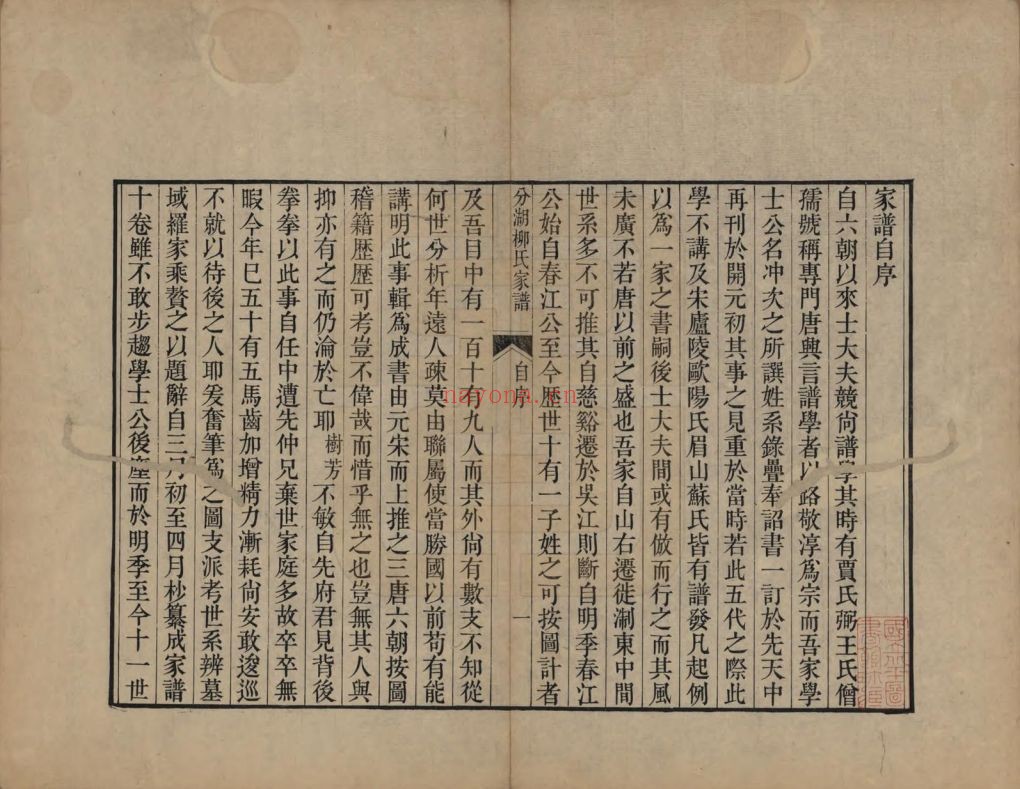 家譜自序
自六朝以來士大夫競尙譜學其時有賈氏弼王氏僧
孺號稱專門唐興言譜學者以路敬淳爲宗而吾家學
士公名冲次之所譔姓系錄疊奉詔書一訂於先天中
再刊於開元初其事之見重於當時若此五代之際此
學不講及宋廬陵歐陽氏眉山蘇氏皆有譜發凡起例
以爲一家之書嗣後士大夫間或有倣而行之而其風
未廣不若唐以前之盛也吾家自山右遷徙淛東中間
世系多不可推其自慈谿遷於吳江則斷自明季春江
公始自春江公至今歷世十有一子姓之可按圖計者
分湖柳氏家譜 自序 一
及吾目中有一百十有九人而其外尙有數支不知從
何世分析年遠人疎莫由聯屬使當勝國以前苟有能
講明此事輯爲成書由元宋而上推之三唐六朝按圖
稽籍歷歷可考豈不偉哉而惜乎無之也豈無其人與
抑亦有之而仍淪於亡耶樹芳不敏自先府君見背後
拳拳以此事自任中遭先仲兄棄世家庭多故卒卒無
暇今年巳五十有五馬齒加增精力漸耗尙安敢逡巡
不就以待後之人耶爰奮筆爲之圖支派考世系辨墓
域羅家乘贅之以題辭自三月初至四月杪纂成家譜
十卷雖不敢步趨學士公後塵而於明季至今十一世
nayona.cn